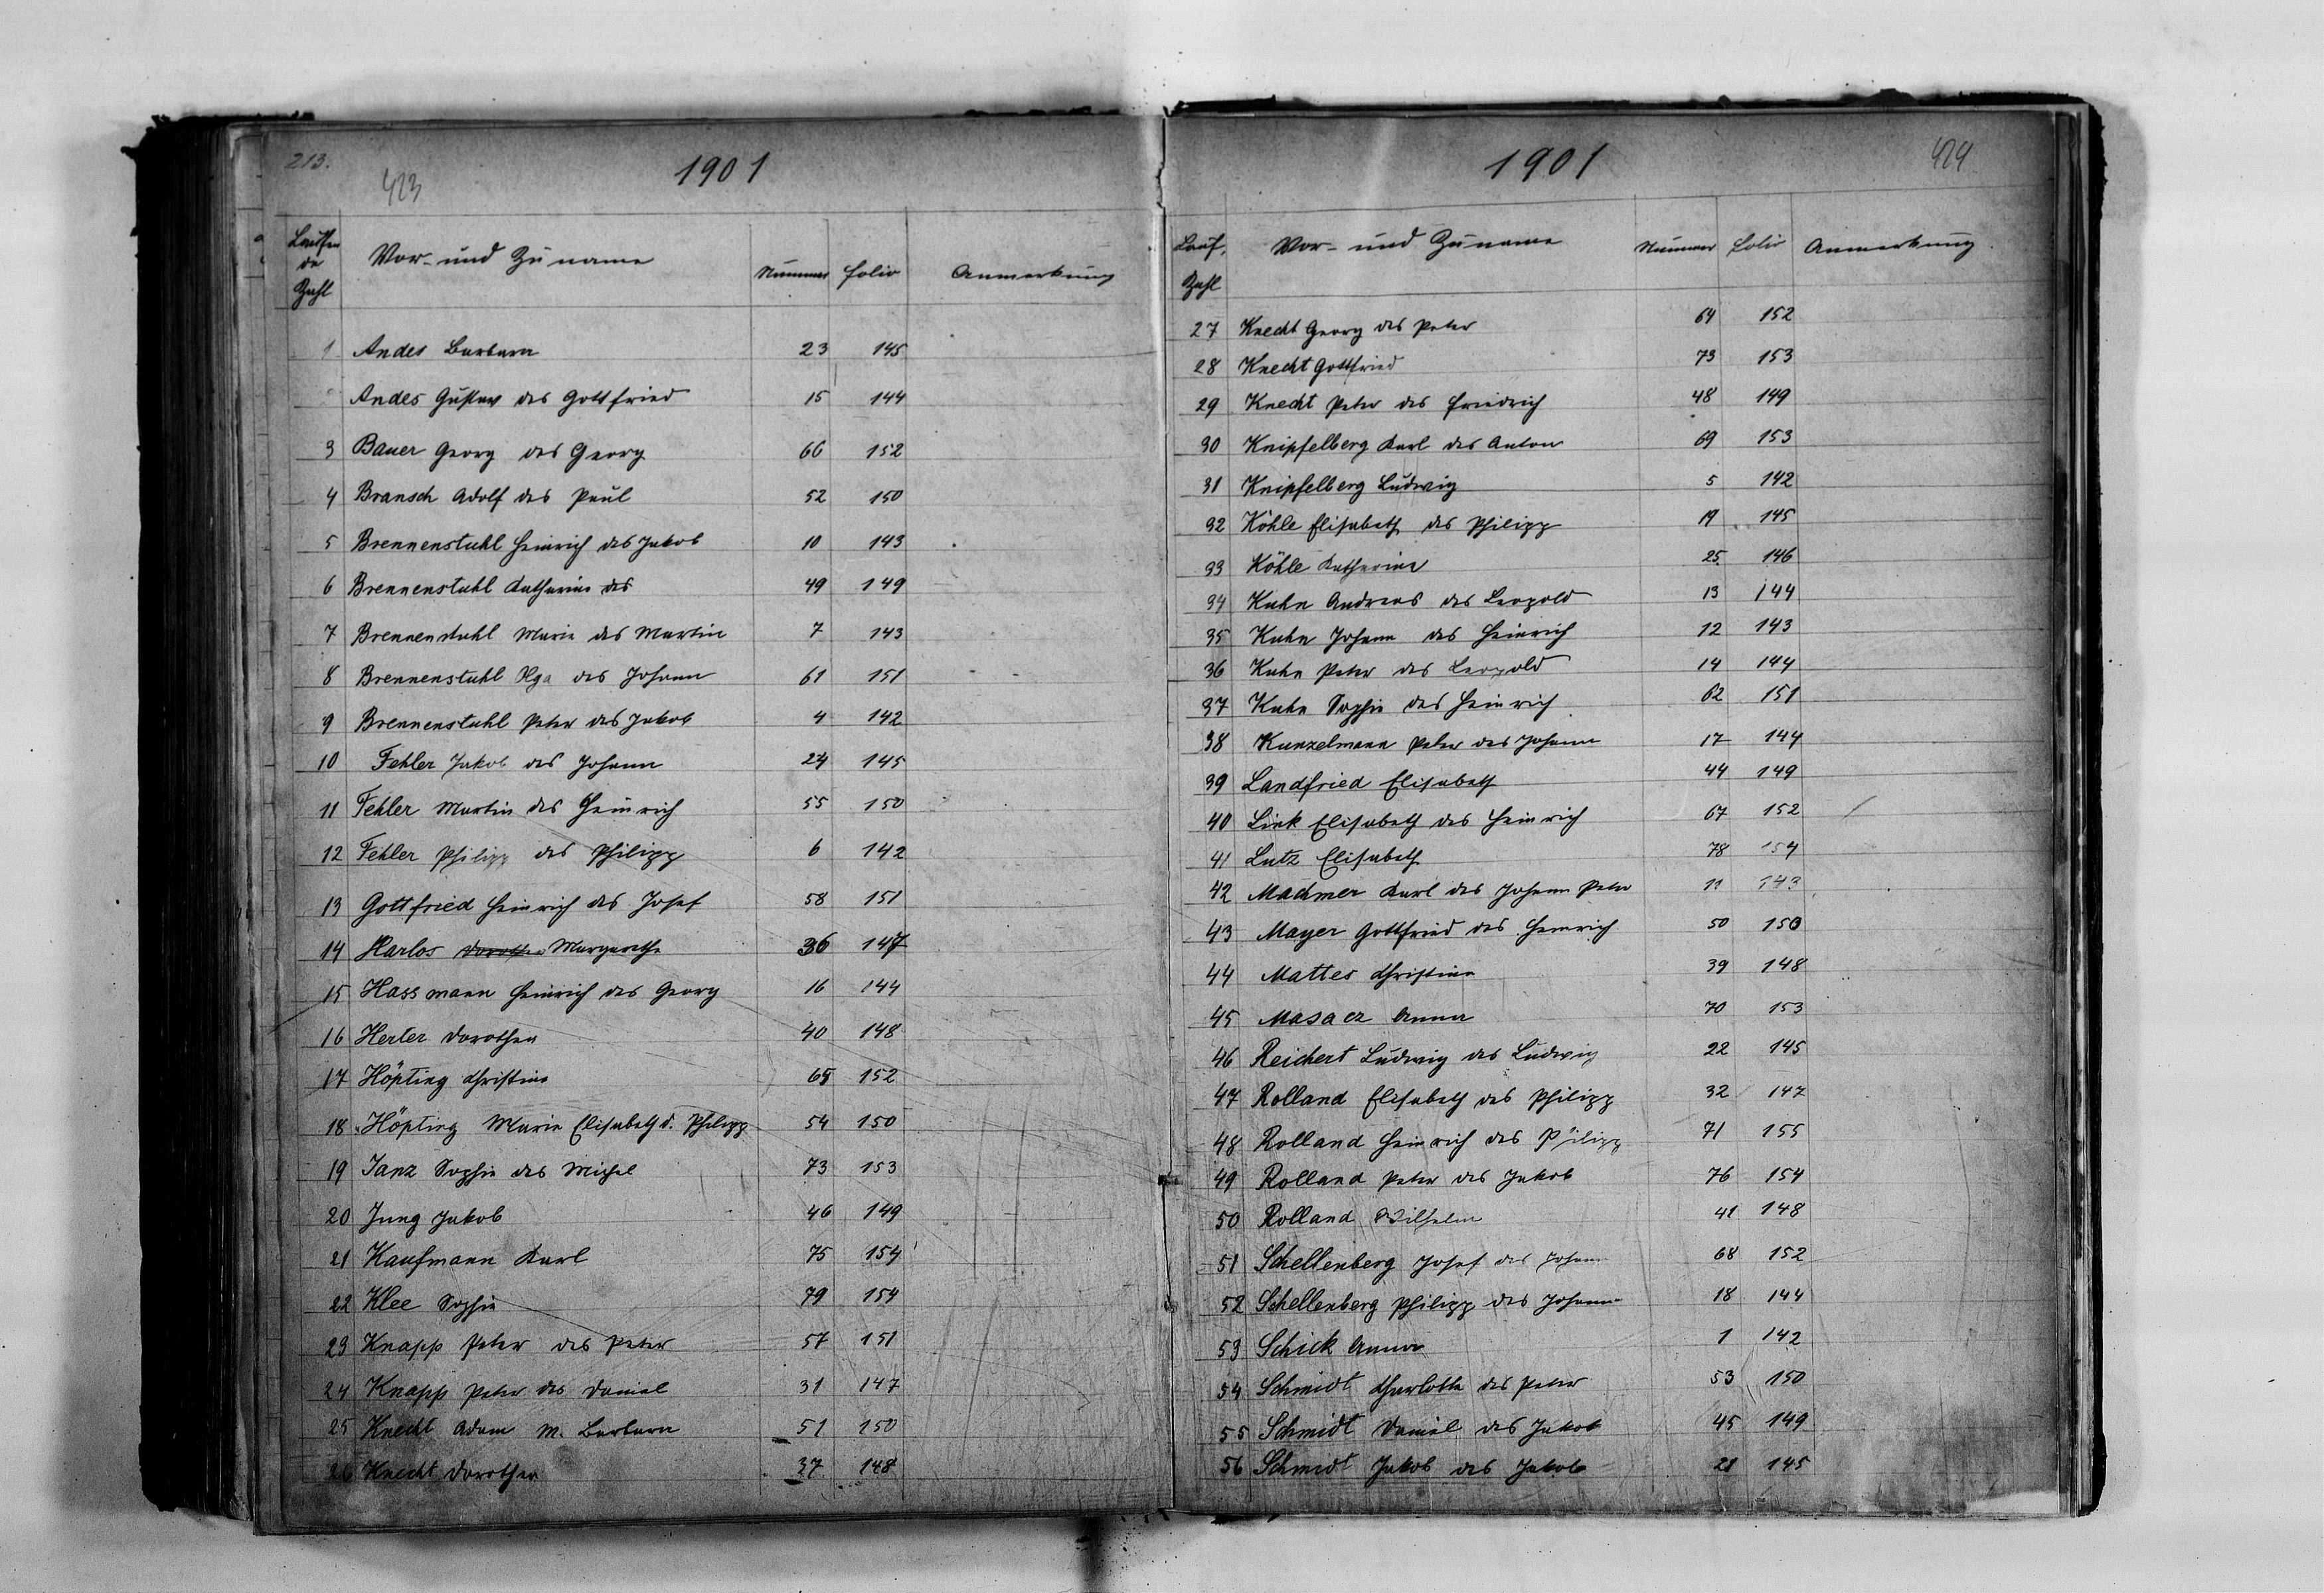 213.
423
1901
Laufen
de
Zahl
Vor- und Zuname
Nummer
Folio
Anmerkung
1 Andes Barbara 23 145
Andes Gustav des Gottfried 15 144
3 Bauer Georg des Georg 66 152
4 Bransch Adolf des Paul 52 150
5 Brennenstuhl Heinrich des Jakob 10 143
6 Brennenstuhl Katharina des 49 149
7 Brennenstuhl Maria des Martin 7 143
8 Brennenstuhl Olga des Johann 61 151
9 Brennenstuhl Peter des Jakob 4 142
10 Fehler Jakob des Johann 24 145
11 Fehler Martin des Heinrich 55 150
12 Fehler Philipp des Philipp 6 142
13 Gottfried Heinrich des Josef 58 151
14 Harlos Dorothea Margaretha 36 147
15 Hassmann Heinrich des Georg 16 144
16 Herter Dorothea 40 148
17 Höpting Christina 65 152
18 Höpting Maria Elisabeth d. Philipp 54 150
19 Janz Sophia des Michel 73 153
20 Jung Jakob 46 149
21 Kaufmann Karl 75 154
22 Klee Sophia 79 154
23 Knapp Peter des Peter 57 151
24 Knapp Peter des Daniel 31 147
25 Knecht Adam M. Barbara 51 150
26 Knecht Dorothea 37 148
1901
424
Lauf.
Zahl
Vor- und Zuname
Nummer
Folio
Anmerkung
27 Knecht Georg des Peter 64 152
28 Knecht Gottfried 73 153
29 Knecht Peter des Friedrich 48 149
30 Knipfelberg Karl des Anton 69 153
31 Knipfelberg Ludwig 5 142
32 Köhle Elisabeth des Philipp 19 145
33 Köhle Katharina 25 146
34 Kuhn Andreas des Leopold 13 144
35 Kuhn Johann des Heinrich 12 143
36 Kuhn Peter des Leopold 14 144
37 Kuhn Sophia des Heinrich 62 151
38 Kunzelmann Peter des Johann 17 144
39 Landfried Elisabeth 44 149
40 Link Elisabeth des Heinrich 67 152
41 Lutz Elisabeth 78 154
42 Machmer Karl des Johann Peter 11 143
43 Mayer Gottfried des Heinrich 50 150
44 Mattes Christina 39 148
45 Masacz Anna 70 153
46 Reichert Ludwig des Ludwig 22 145
47 Rolland Elisabeth des Philipp 32 147
48 Rolland Heinrich des Philipp 71 155
49 Rolland Peter des Jakob 76 154
50 Rolland Wilhelm 41 148
51 Schellenberg Josef des Johann 68 152
52 Schellenberg Philipp des Johann 18 144
53 Schick Anna 1 142
54 Schmidt Charlotte des Peter 53 150
55 Schmidt Daniel des Jakob 45 149
56 Schmidt Jakob des Jakob 21 145